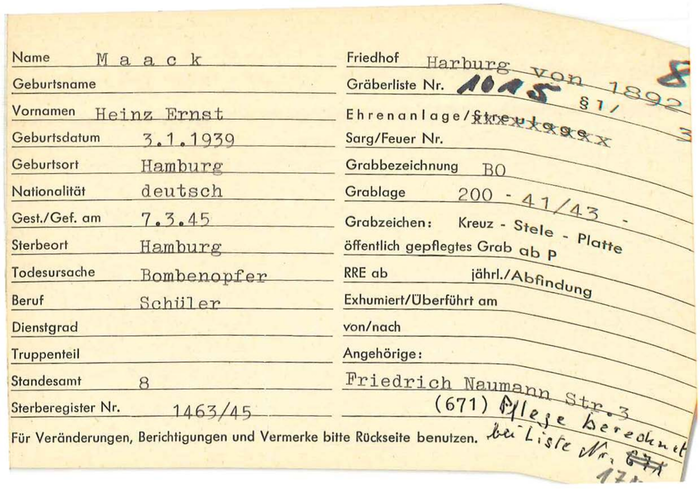 Name Maack
Geburtsname
Vornamen Heinz Ernst
Geburtsdatum 3.1.1939
Geburtsort Hamburg
Nationalität deutsch
Gest./Gef. am 7.3.45
Sterbeort Hamburg
Todesursache Bombenopfer
Beruf Schüler
Dienstgrad
Truppenteil
Standesamt 8
Sterberegister Nr. 1463/45
Für Veränderungen, Berichtigungen und Vermerke bitte Rückseite benutzen.
Friedhof Harburg von 1892 8
Gräberliste Nr. 1015 §1/ 3
Ehrenanlage/Streulage
Sarg/Feuer Nr.
Grabbezeichnung BO
Grablage 200 - 41/43 -
Grabzeichen: Kreuz - Stele - Platte
öffentlich gepflegtes Grab ab P
RRE ab jährl./Abfindung
Exhumiert/Überführt am
von/nach
Angehörige:
Friedrich Naumann Str.3
(671) Pflege berechnet
bei Liste Nr. 671